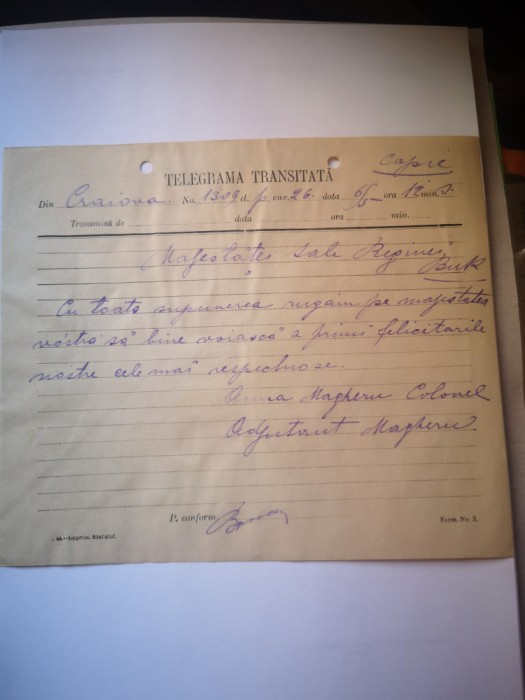 Copie
TELEGRAMA TRANSITATĂ
Din Craiova No. 1309 cl. p. cuv. 26. data 6/5 ora 12 min. S.
Transmisă de data ora min.
Majestăței Sale Reginei
Buk
Cu toata supunerea rugăm pe majestatea
vóstră să bine voiască a primi felicitarile
nostre cele mai respectuose.
Anna Magheru Colonel
Adjutant Magheru.
P. conform.
Imprim. Statului.
Form. No. 3.